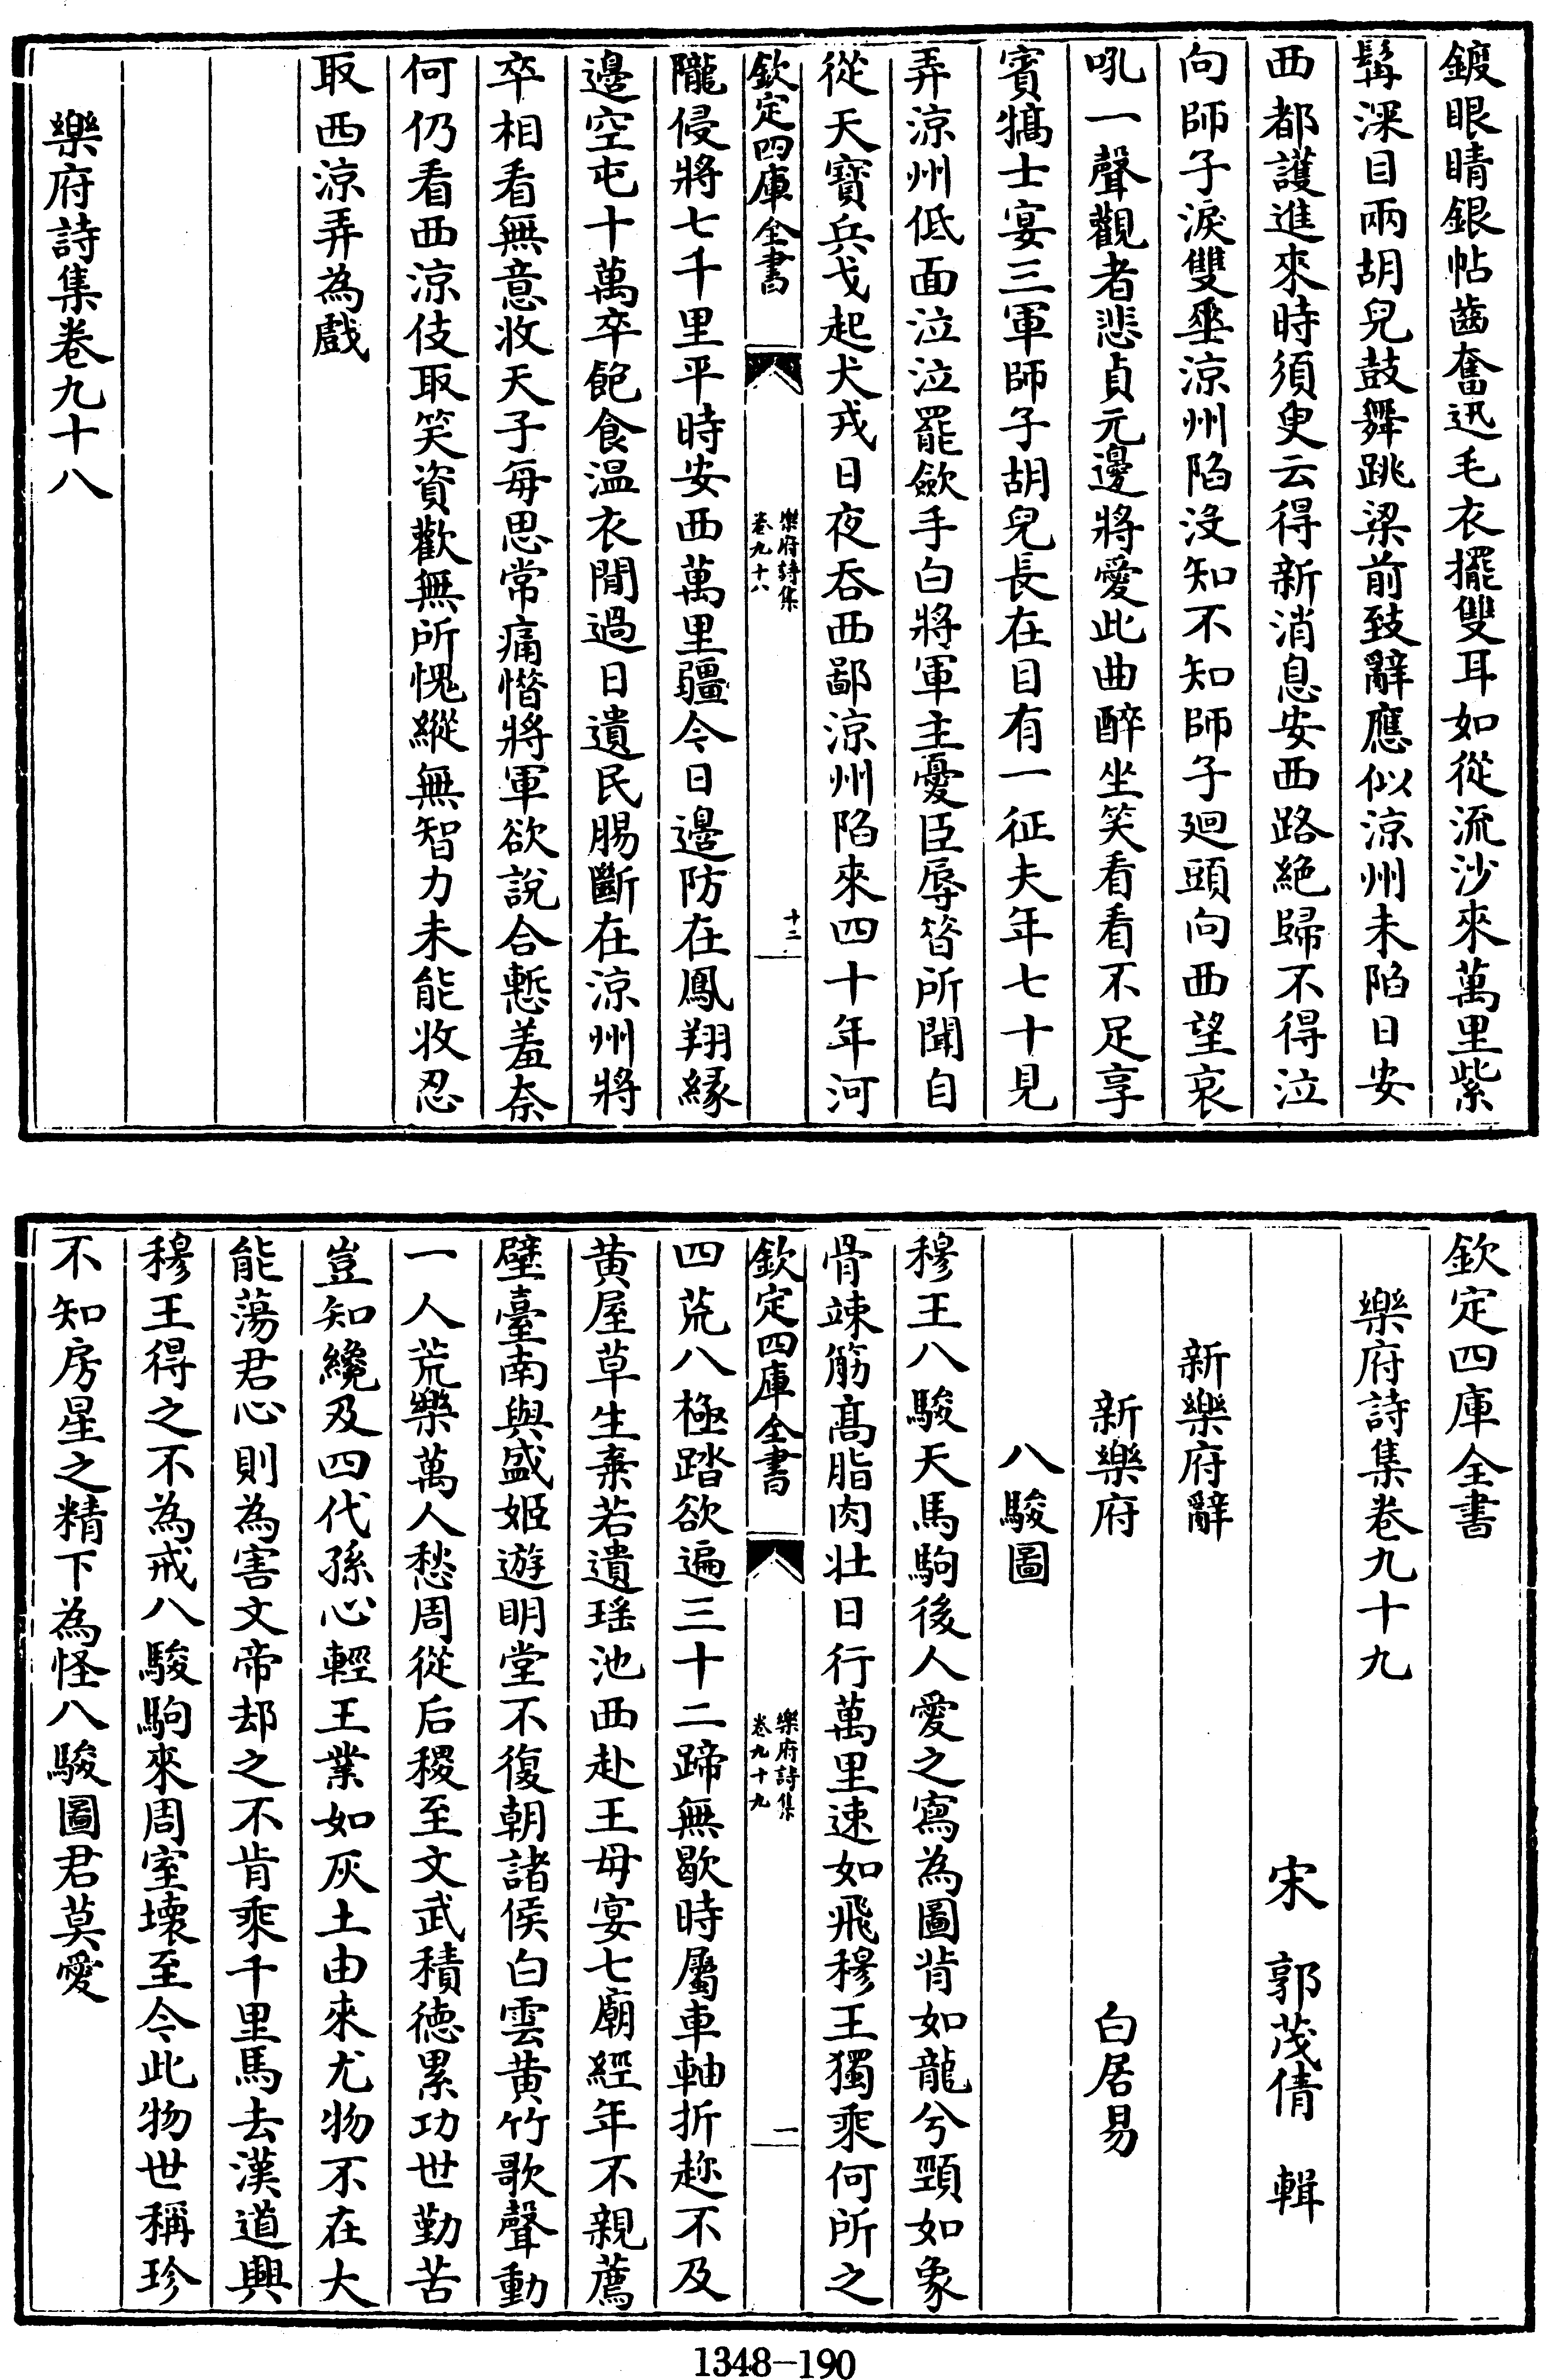 鍍眼睛銀帖齒奮迅毛衣擺雙耳如從流沙來萬里紫
髯深目兩胡兒鼓舞跳梁前致辭應似涼州未陷日安
西都護進來時須臾云得新消息安西路絶歸不得泣
向師子淚雙垂涼州陷沒知不知師子廻頭向西望哀
吼一聲觀者悲貞元邊將愛此曲醉坐笑看看不足享
賔犒士宴三軍師子胡兒長在目有一征夫年七十見
弄涼州低面泣泣罷斂手白將軍主憂臣辱昔所聞自
從天寶兵戈起犬戎日夜吞西鄙涼州陷來四十年河
欽定四庫全書
樂府詩集
卷九十八
十二
隴侵將七千里平時安西萬里疆今日邊防在鳳翔緣
邊空屯十萬卒飽食温衣閒過日遺民腸斷在涼州將
卒相看無意收天子每思常痛惜將軍欲說合慙羞奈
何仍看西涼伎取笑資歡無所愧縱無智力未能收忍
取西涼弄為戲
樂府詩集卷九十八
欽定四庫全書
樂府詩集卷九十九
宋 郭茂倩 輯
新樂府辭
新樂府 白居易
八駿圖
穆王八駿天馬駒後人愛之寫為圖背如龍兮頸如象
骨竦筋高脂肉壯日行萬里速如飛穆王獨乘何所之
欽定四庫全書
樂府詩集
卷九十九
一
四荒八極踏欲遍三十二蹄無歇時屬車軸折趂不及
黄屋草生棄若遺瑶池西赴王母宴七廟經年不親薦
璧臺南與盛姬遊明堂不復朝諸侯白雲黄竹歌聲動
一人荒樂萬人愁周從后稷至文武積徳累功世勤苦
豈知纔及四代孫心輕王業如灰土由來尤物不在大
能蕩君心則為害文帝却之不肯乘千里馬去漢道興
穆王得之不為戒八駿駒來周室壞至今此物世稱珍
不知房星之精下為怪八駿圖君莫愛
1348-190